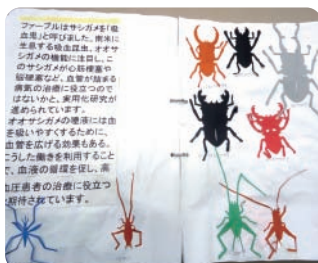 ファーブルはサシガメを「吸
血鬼」と呼びました。南米に
生息する吸血昆虫、オオサ
シガメの機能に注目し、こ
のサシガメが心筋梗塞や
脳梗塞など、血管が詰まる
病気の治療に役立つので
はないかと、実用化研究が
進められています。
オオサシガメの唾液には血
を吸いやすくするために、
血管を広げる効果もある。
こうした働きを利用すること
で、血液の循環を促し、高
血圧患者の治療に役立つ
期待されています。